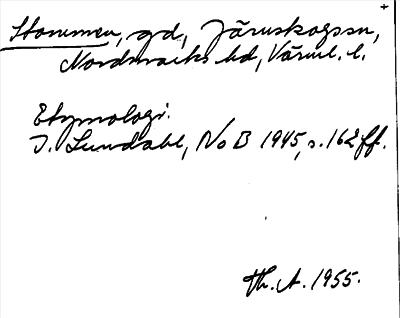 Stommen, gd., Järnskogssn,
Nordmarks hd, Värml. l.
Etymologi.
I. Lundahl, NoB 1945, s. 162 ff.
Th. A. 1955.